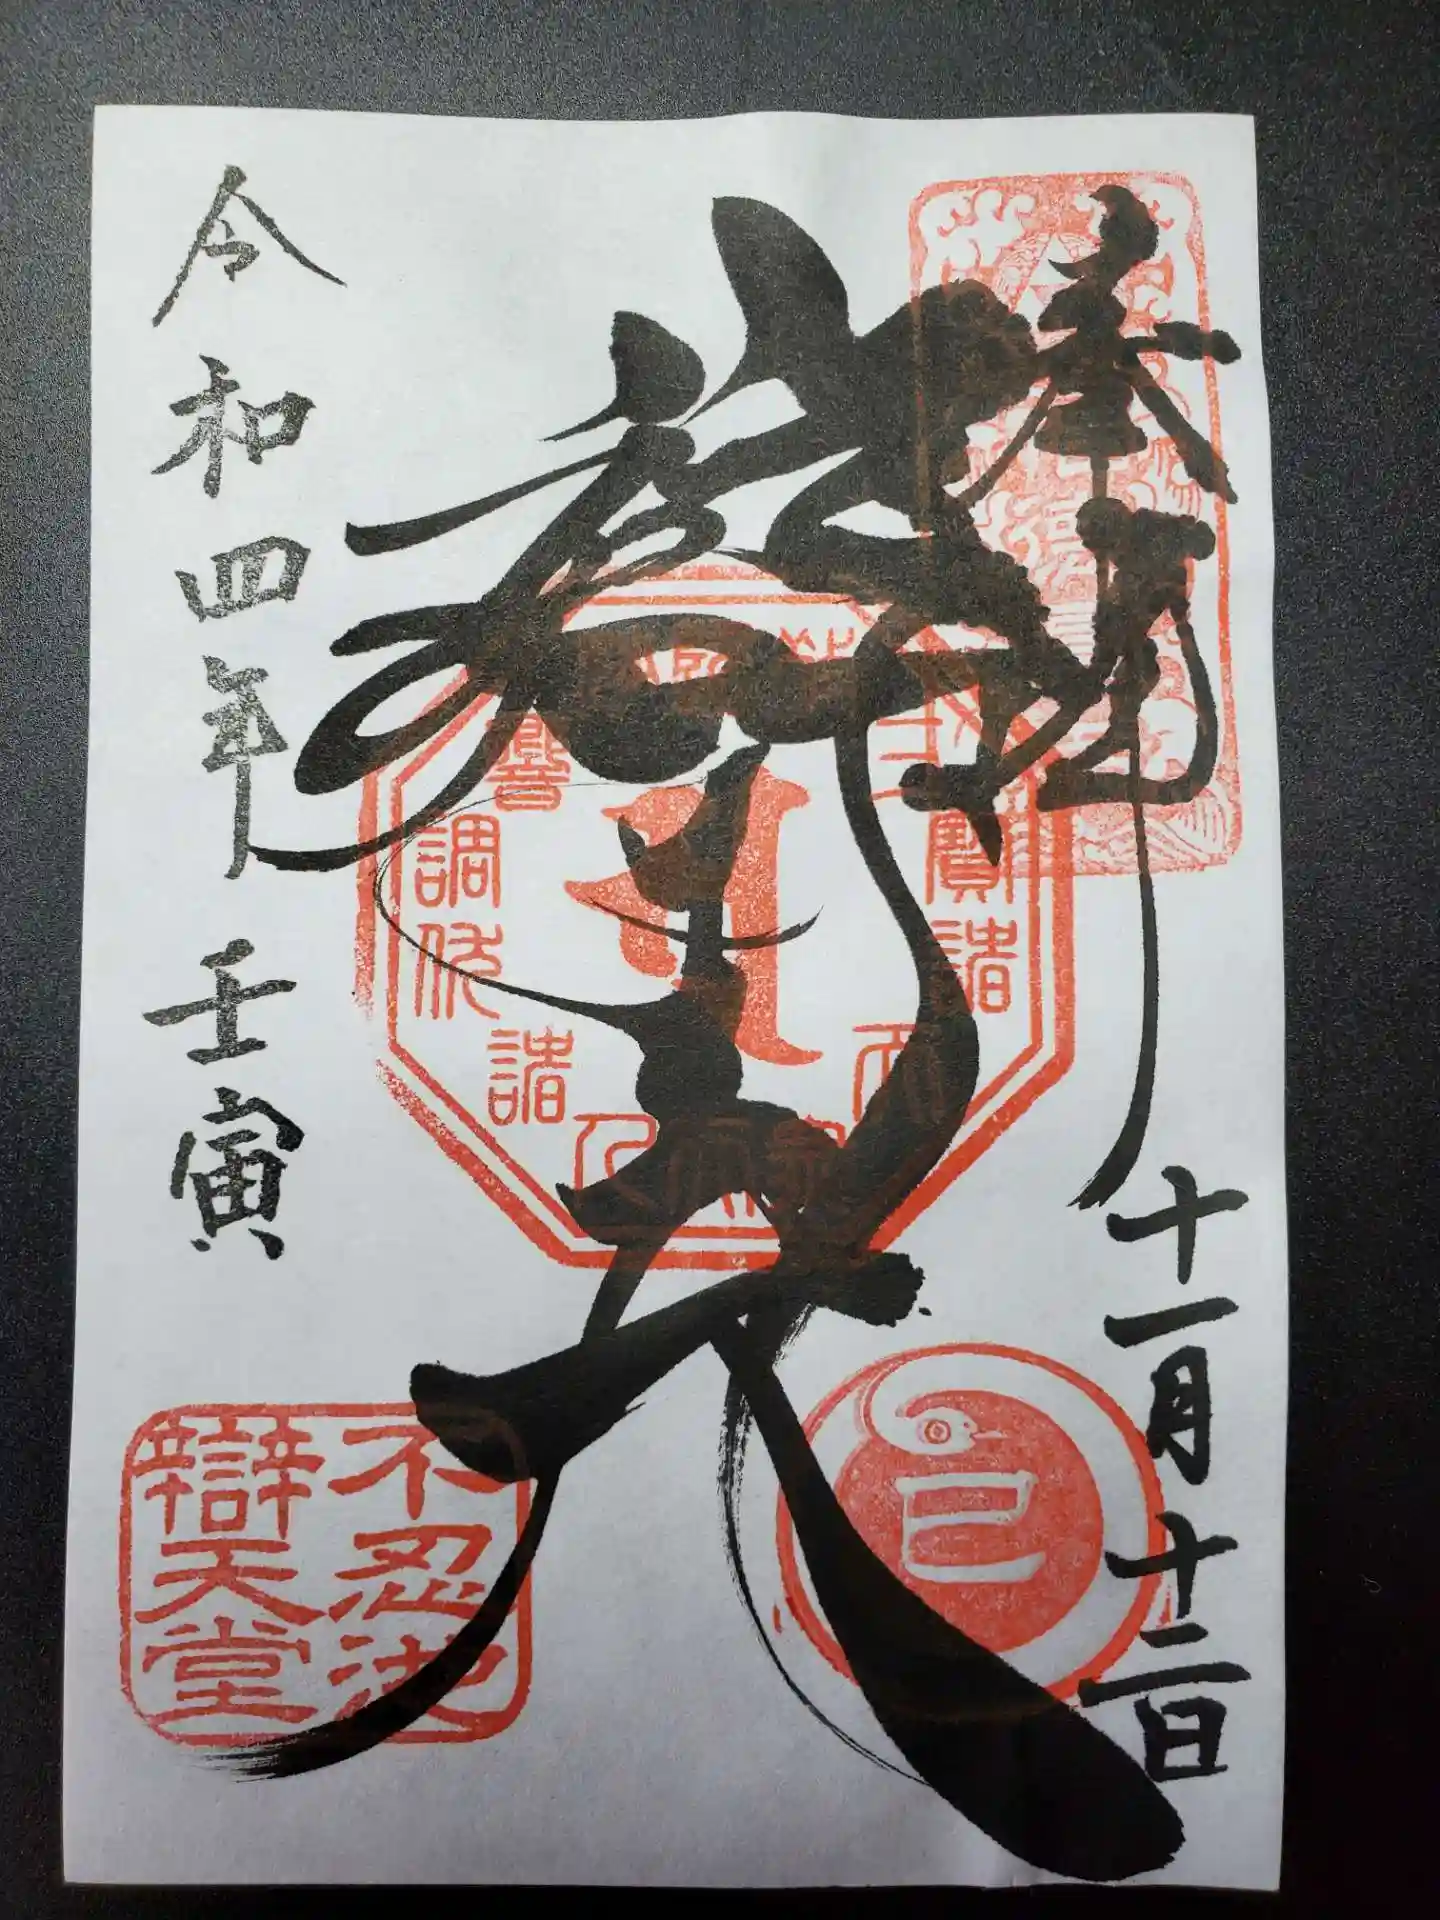 奉拝
十一月十二日
辯才天
令和四年 壬寅
巳
不忍池
辯天堂